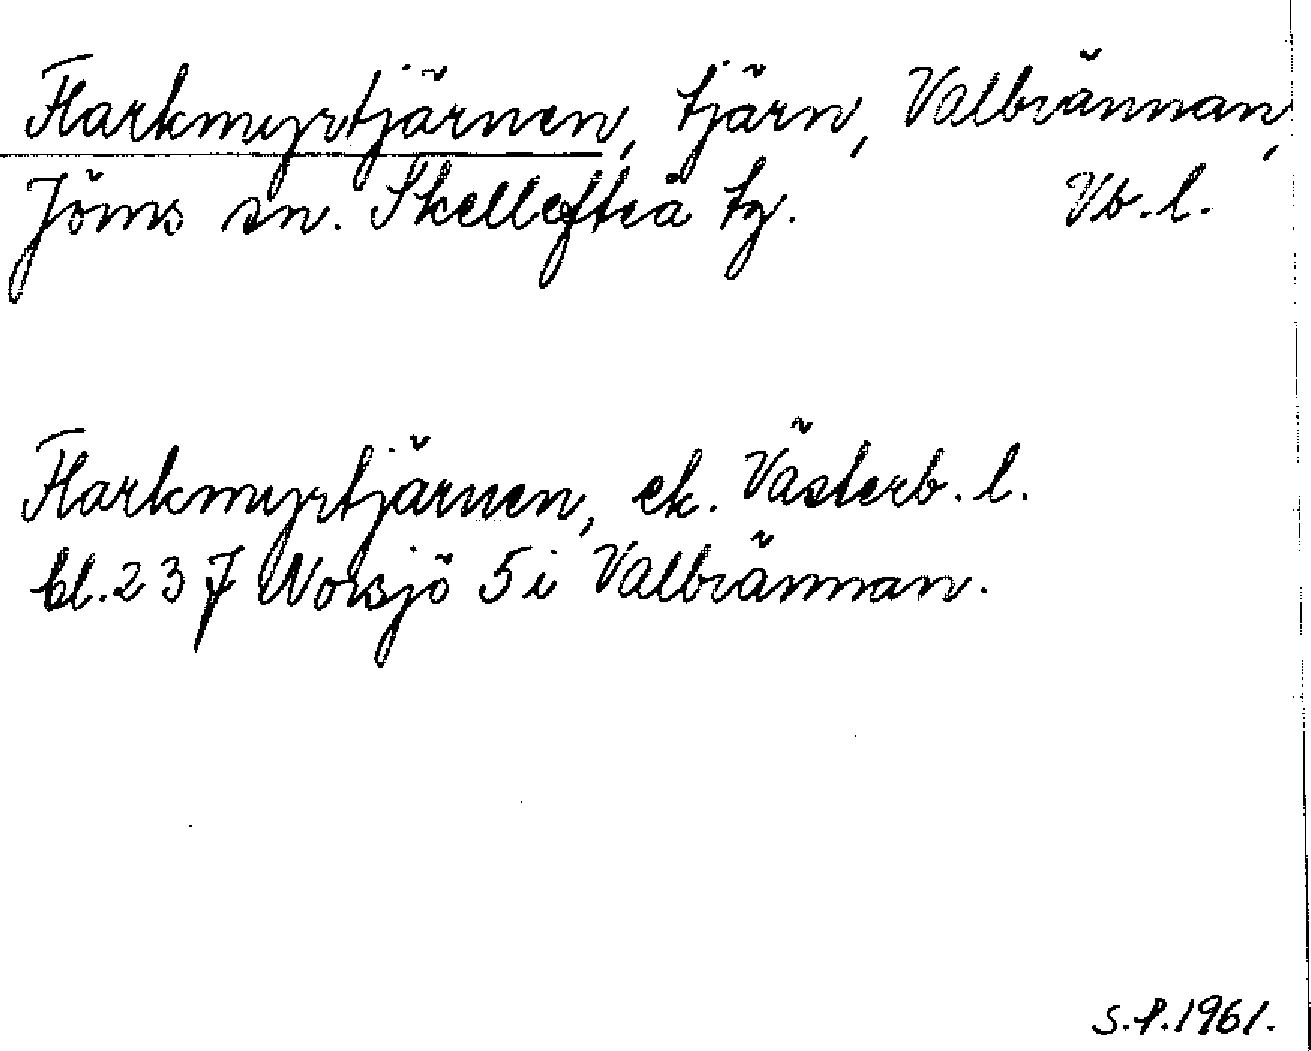 Flarkmyrtjärnen, tjärn, Valbrännan,
Jörns sn. Skellefteå tg. Vb.l.
Flarkmyrtjärnen, ek. Västerb.l.
bl.23 J Norsjö 5i Valbrännan.
S.P.1961.